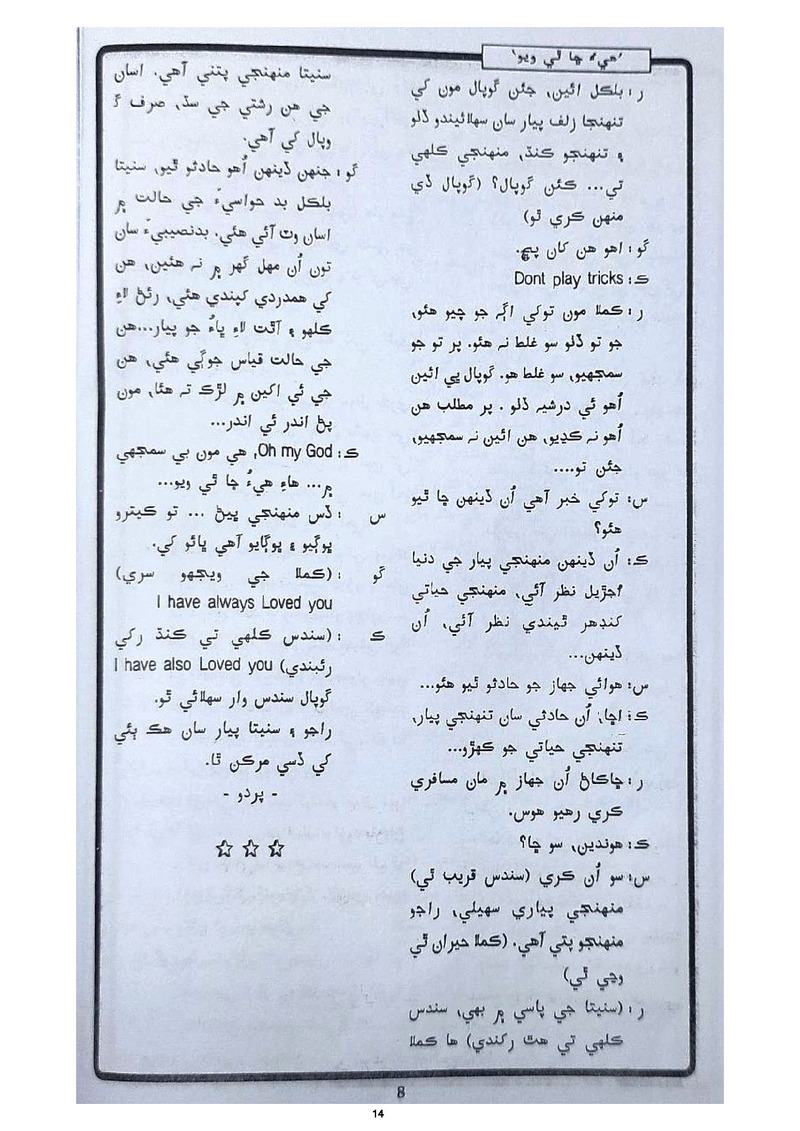 ’هيءُ ڇا ٿي ويو‘
ر : بلڪل ائين، جئن گوپال مون کي
تنهنجا زلف پيار سان سهلائيندو ڏٺو
۽ تنهنجو ڪنڌ، منهنجي ڪلهي
تي... ڪئن گوپال؟ (گوپال ڏي
منهن ڪري ٿو)
گو : اهو هن کان پڇ.
ڪ : Dont play tricks
ر : ڪملا مون توکي اڳ جو چيو هئو،
جو تو ڏٺو سو غلط نہ هئو. پر تو جو
سمجهيو، سو غلط هو. گوپال بي ائين
اُهو ئي درشيہ ڏٺو . پر مطلب هن
اُهو نہ ڪڍيو، هن ائين نہ سمجهيو،
جئن تو....
س: توکي خبر آهي اُن ڏينهن ڇا ٿيو
هئو؟
ڪ: اُن ڏينهن منهنجي پيار جي دنيا
اُجڙيل نظر آئي، منهنجي حياتي
کنڊهر ٿيندي نظر آئي، اُن
ڏينهن...
س: هوائي جهاز جو حادثو ٿيو هئو...
ڪ: اڇا، اُن حادثي سان تنهنجي پيار،
تنهنجي حياتي جو ڪهڙو...
ر : ڇاڪاڻ اُن جهاز ۾ مان مسافري
ڪري رهيو هوس.
ڪ: هوندين، سو ڇا؟
س: سو اُن ڪري (سندس قريب ٿي)
منهنجي پياري سهيلي، راجو
منهنجو پتي آهي. (ڪملا حيران ٿي
وڃي ٿي)
ر : (سنيتا جي پاسي ۾ بهي، سندس
ڪلهي تي هٿ رکندي) ها ڪملا
سنيتا منهنجي پتني آهي. اسان
جي هن رشتي جي سڌ، صرف گ
وپال کي آهي.
گو : جنهن ڏينهن اُهو حادثو ٿيو، سنيتا
بلڪل بد حواسيءَ جي حالت ۾
اسان وٽ آئي هئي. بدنصيبيءَ سان
تون اُن مهل گهر ۾ نہ هئين، هن
کي همدردي کپندي هئي، رئڻ لاءِ
ڪلهو ۽ آٿت لاءِ ڀاءُ جو پيار...هن
جي حالت قياس جوڳي هئي، هن
جي ئي اکين ۾ لڙڪ تہ هئا، مون
پڻ اندر ئي اندر...
ڪ : Oh my God، هي مون بي سمجهي
۾... هاءِ هيءُ ڇا ٿي ويو...
س : ڏس منهنجي ڀيڻ ... تو ڪيترو
ڀوڳيو ۽ ڀوڳايو آهي ڀائو کي.
گو : (ڪملا جي ويجهو سري)
I have always Loved you
ڪ : (سندس ڪلهي تي ڪنڌ رکي
رئندي) I have also Loved you
گوپال سندس وار سهلائي ٿو.
راجو ۽ سنيتا پيار سان هڪ ٻئي
کي ڏسي مرڪن ٿا.
- پردو -
8
14